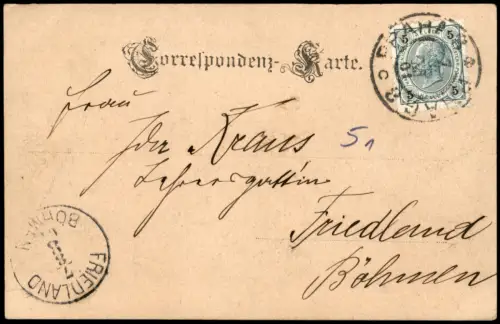 Correspondenz-Karte.
PRAHA
PRAG
5 5
Frau
Ida Kraus
5
Lehrersgattin
Friedland
Böhmen
FRIEDLAND
BÖHMEN